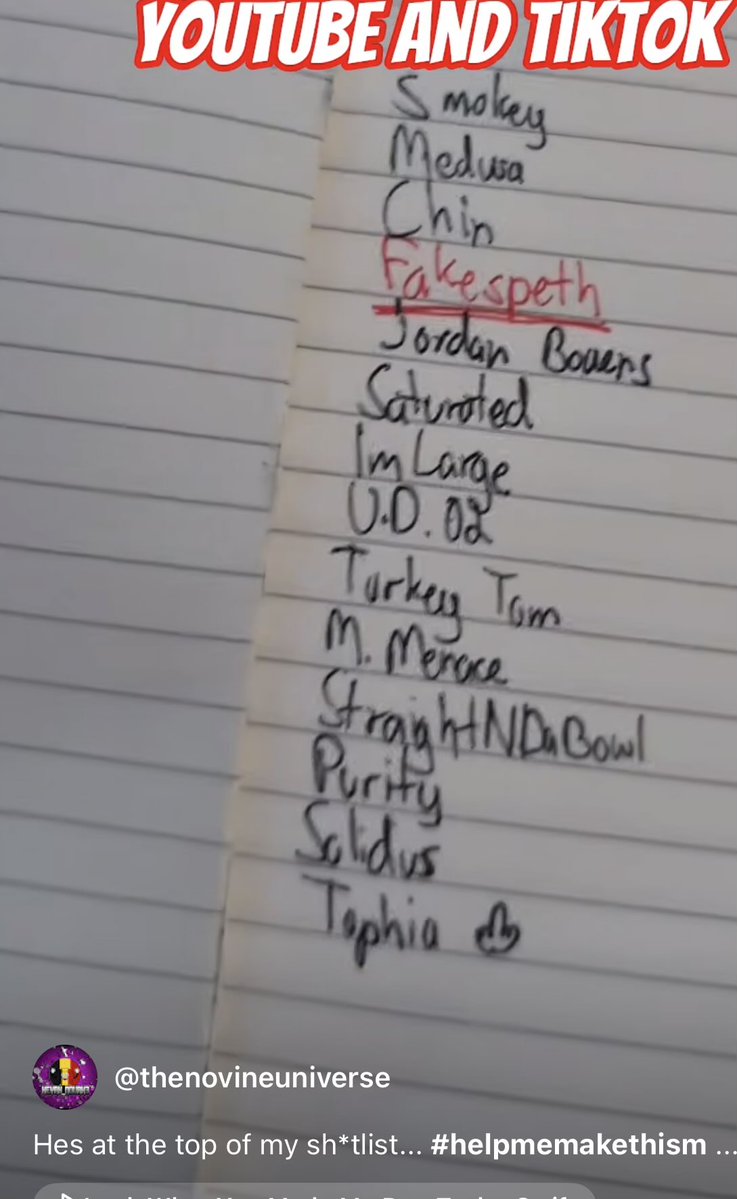 YOUTUBE AND TIKTOK
Smokey
Medusa
Chin
Fakespeth
Jordan Bowers
Saturated
Im Large
U.D. 02
Turkey Tom
M. Menace
StraightNDaBowl
Purity
Solidus
Tophia
@thenovineuniverse
Hes at the top of my sh*tlist... #helpmemakethism ...